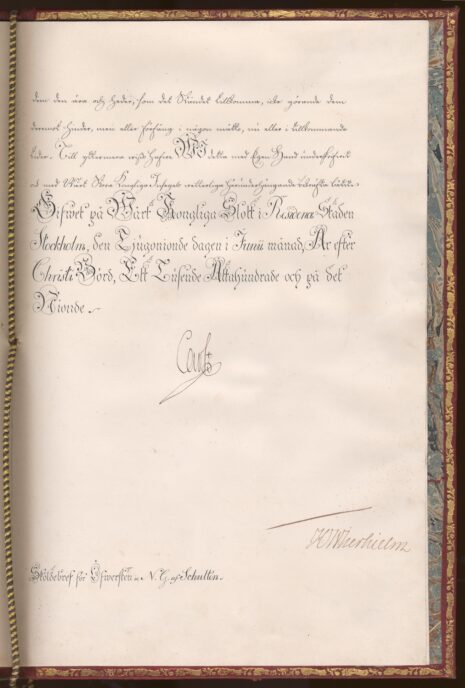 dem den ära och heder, som det Ståndet tillkomma, icke görande dem
deremot hinder, men eller förfång i någon måtto, nu eller i tillkommande
tider. Till yttermera visso hafve Wi detta med Egen Hand underskrifvit
och med Wårt Stora Kongliga
Gifwet på Wårt Kongliga Slott i Residence Staden
Stockholm, den Tjugonionde dagen i Junii månad, År efter
Christi Börd, Ett Tusende Åttahundrade och på det
Nionde.
Carl
Sköldebref för Öfwersten N. G. af Schultén.